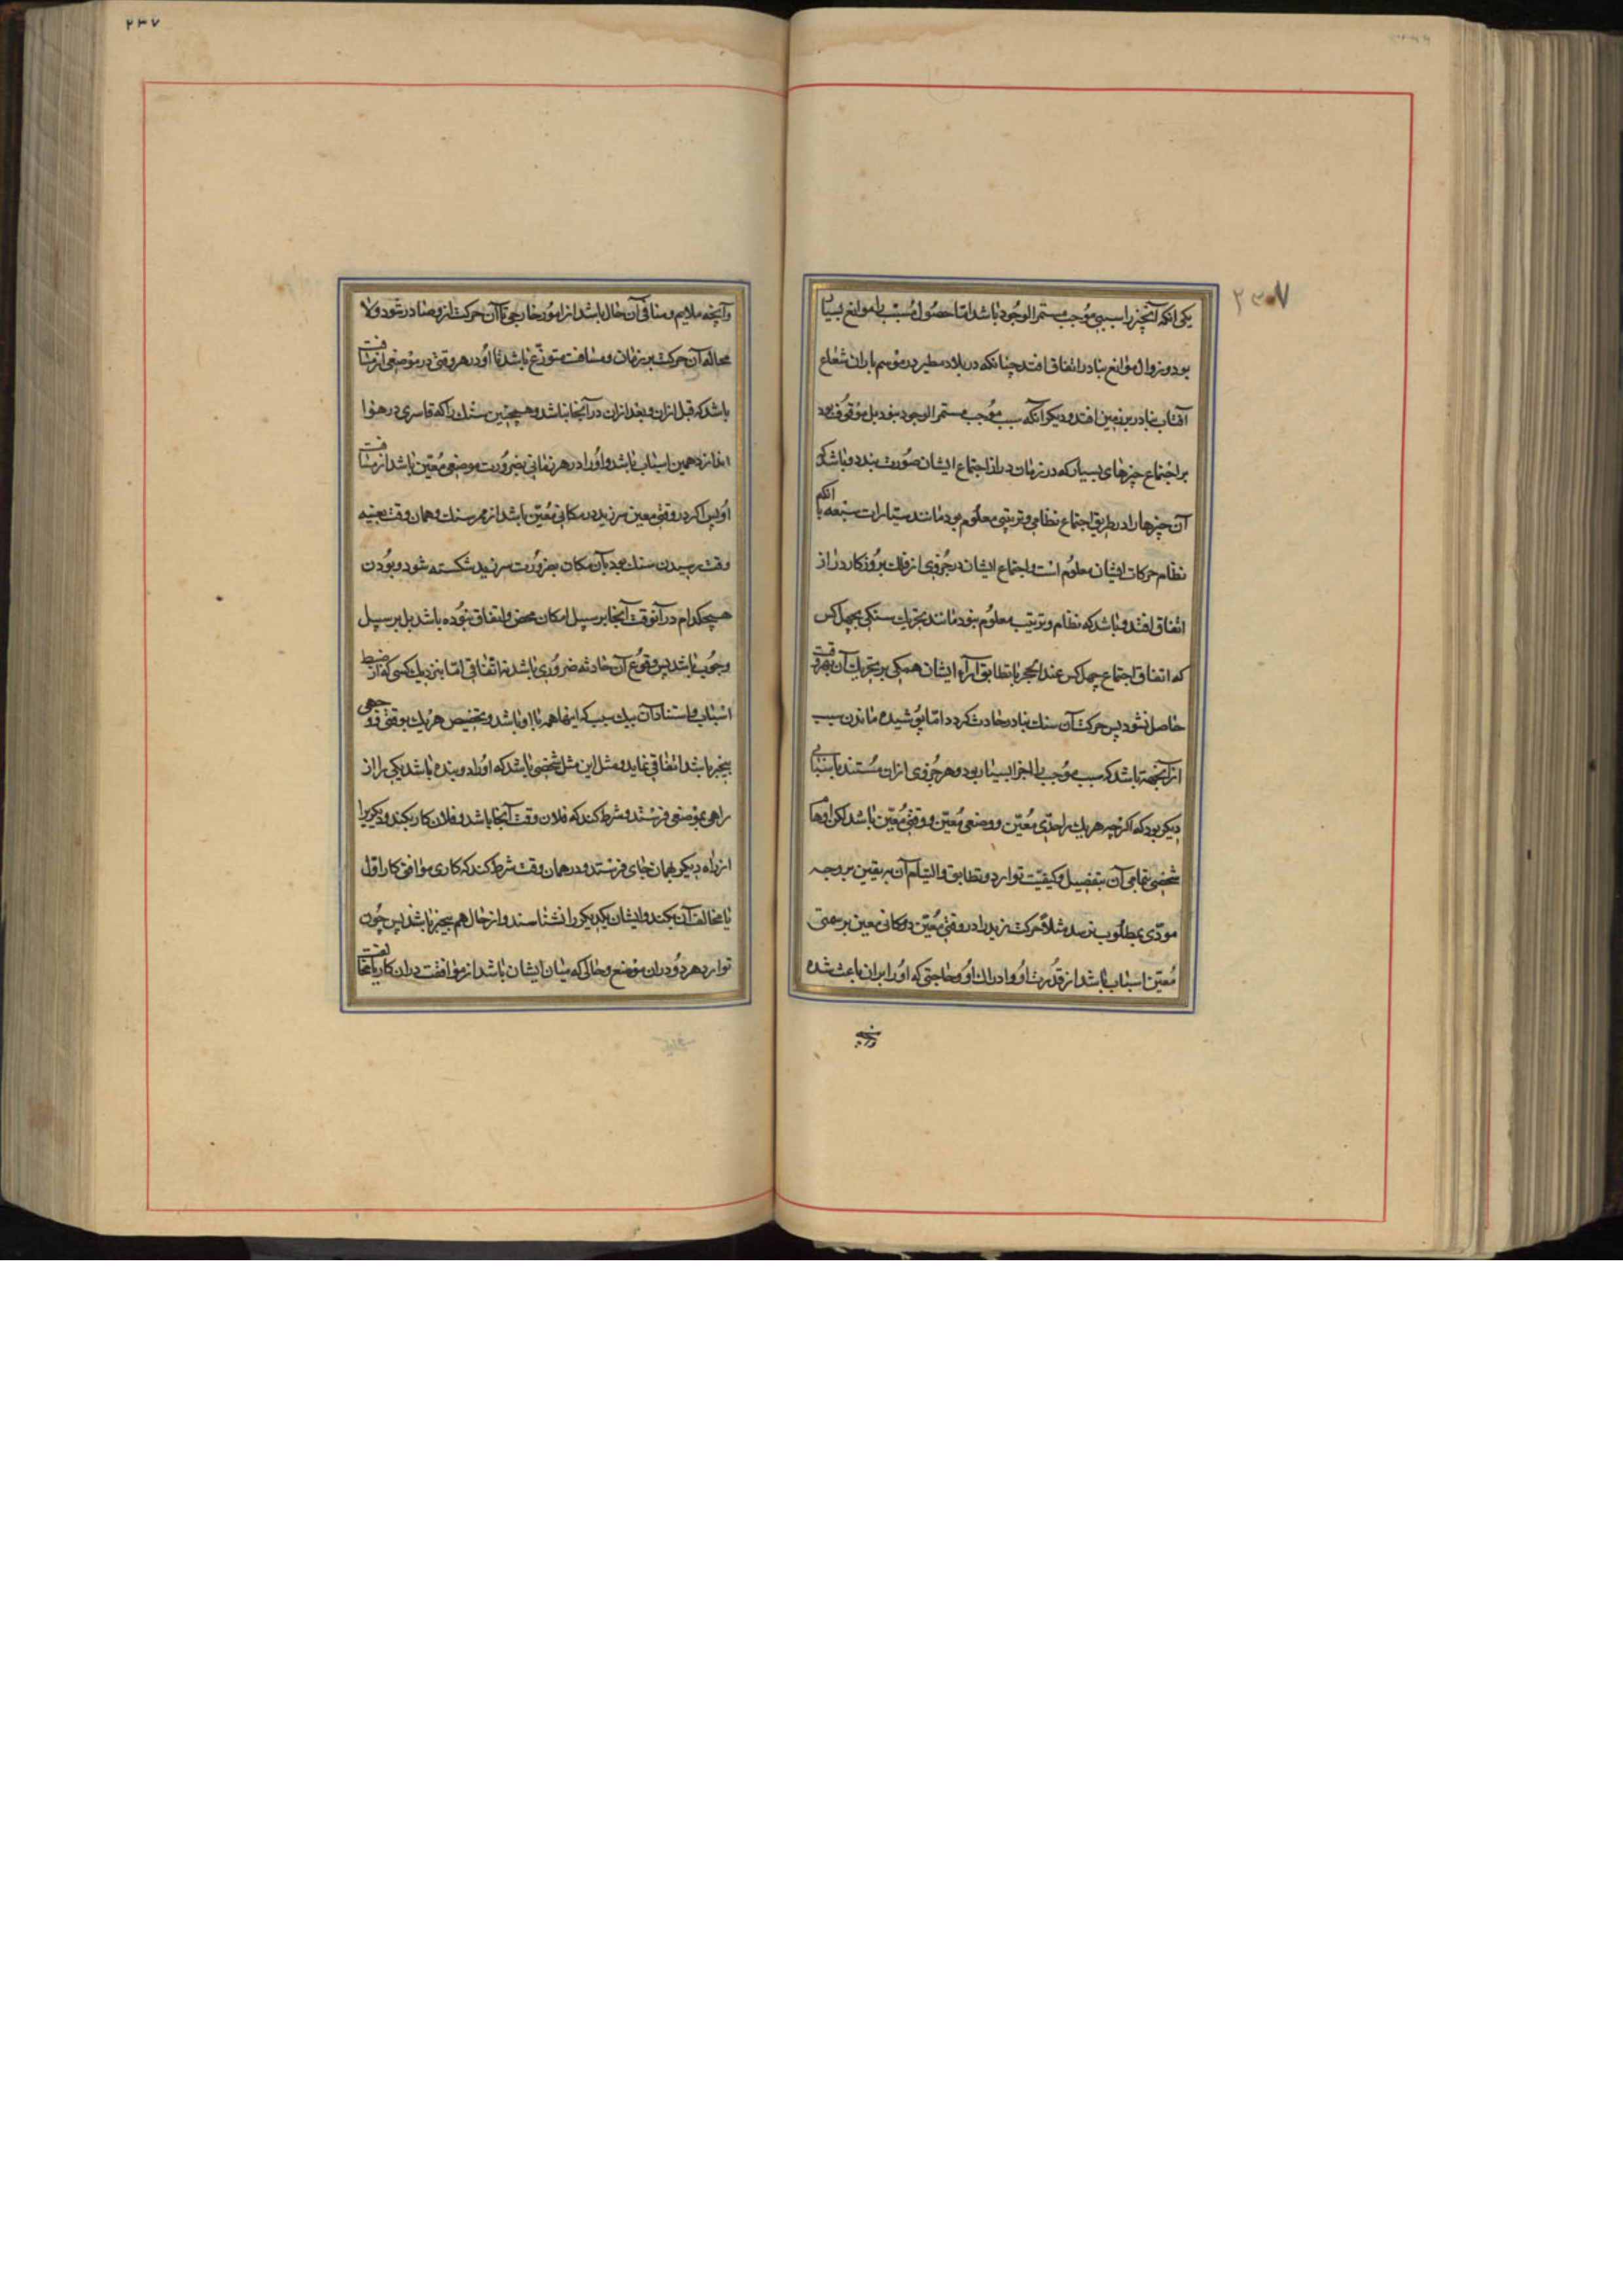 ۲۳۷
یکی انکه آنچیز را سببی موجب مستمر الوجود باشد امّا حصول مسبّب را موانع بسیار
بود و زوال موانع بنادر اتفاق افتد چنانکه در بلاد مطیر در موسم باران شعاع
آفتاب بنادر بر زمین افتد و دیکر آنکه سبب موجب مستمر الوجود نبود بل موقوف بود
بر اجتماع چیزهای بسیار که در زمان دراز اجتماع ایشان صورت بندد و باشد که
آن چیزها را در طریق اجتماع نظامی و ترتیبی معلوم بود مانند سیّارات سبعه با آنکه
نظام حرکات ایشان معلوم است و اجتماع ایشان در جزوی از فلك بروزکار دراز
اتفاق افتد و باشد که نظام و ترتیب معلوم نبود مانند تحریك سنکی بچهل کس
که اتفاق اجتماع چهل کس عند الحجر با تطابق آراء ایشان همکی بر تحریك آن بهر وقت
حاصل نشود پس حرکت آن سنك بنادر حادث کردد امّا پوشیده ماندن سبب
از آنجهة باشد که سبب موجب را اجزا بسیار بود و هر جزوی از ان مستند باسبابی
دیکر بود که اکرچه هر یك را حدّی معیّن و وضعی معیّن و وقتی معیّن باشد لکن اوهام
شخصی بتمامی آن بتفصیل و کیفیّت توارد و تطابق و التیام آن بر یقین بر وجه
مودّی بمطلوب نرسد مثلاً حرکت زید را در وقتی معیّن و مکانی معین بر سمتی
معیّن اسباب باشد از قدرت او و ادراك او و حاجتی که او را بر ان باعث شده
وآنچه
۲۳۷
وآنچه ملایم و منافی آن حال باشد از امور خارجی تا آن حرکت ازو صادر شود و لا
محاله آن حرکت بر زمان و مسافت متوزّع باشد تا او در هر وقتی در موضعی از مسافت
باشد که قبل ازان و بعد ازان در آنجا نباشد و همچنین سنك را که قاسری در هوا
اندازد همین اسباب باشد و او را در هر زمانی بضرورت موضعی معیّن باشد از مسافت
او پس اکر در وقتی معین سر زید در مکانی معیّن باشد از ممر سنك و همان وقت بعینه
وقت رسیدن سنك بود بآن مکان بضرورت سر زید شکسته شود و بودن
هیچکدام در آنوقت آنجا بر سبیل امکان محض و اتفاق نبوده باشد بل بر سبیل
وجوب باشد پس وقوع آن حادثه ضروری باشد نه اتفاقی امّا بنزدیك کسی که از ضبط
اسباب و استناد آن بیك سبب که اینها همه با او باشد و تخصیص هر یك بوقتی و وجهی
بیخبر باشد اتفاقی نماید و مثل این مثل شخصی باشد که او را دو بنده باشد یکی را از
راهی بموضعی فرستد و شرط کند که فلان وقت آنجا باشد و فلان کار بکند و دیکریرا
از راه دیکر بهمان جای فرستد و در همان وقت شرط کند که کاری موافق کار اوّل
یا مخالف آن بکند و ایشان یکدیکر را نشناسند و از حال هم بیخبر باشند پس چون
توارد هر دو در ان موضع و حالی که میان ایشان باشد از موافقت در ان کار یا مخالفت